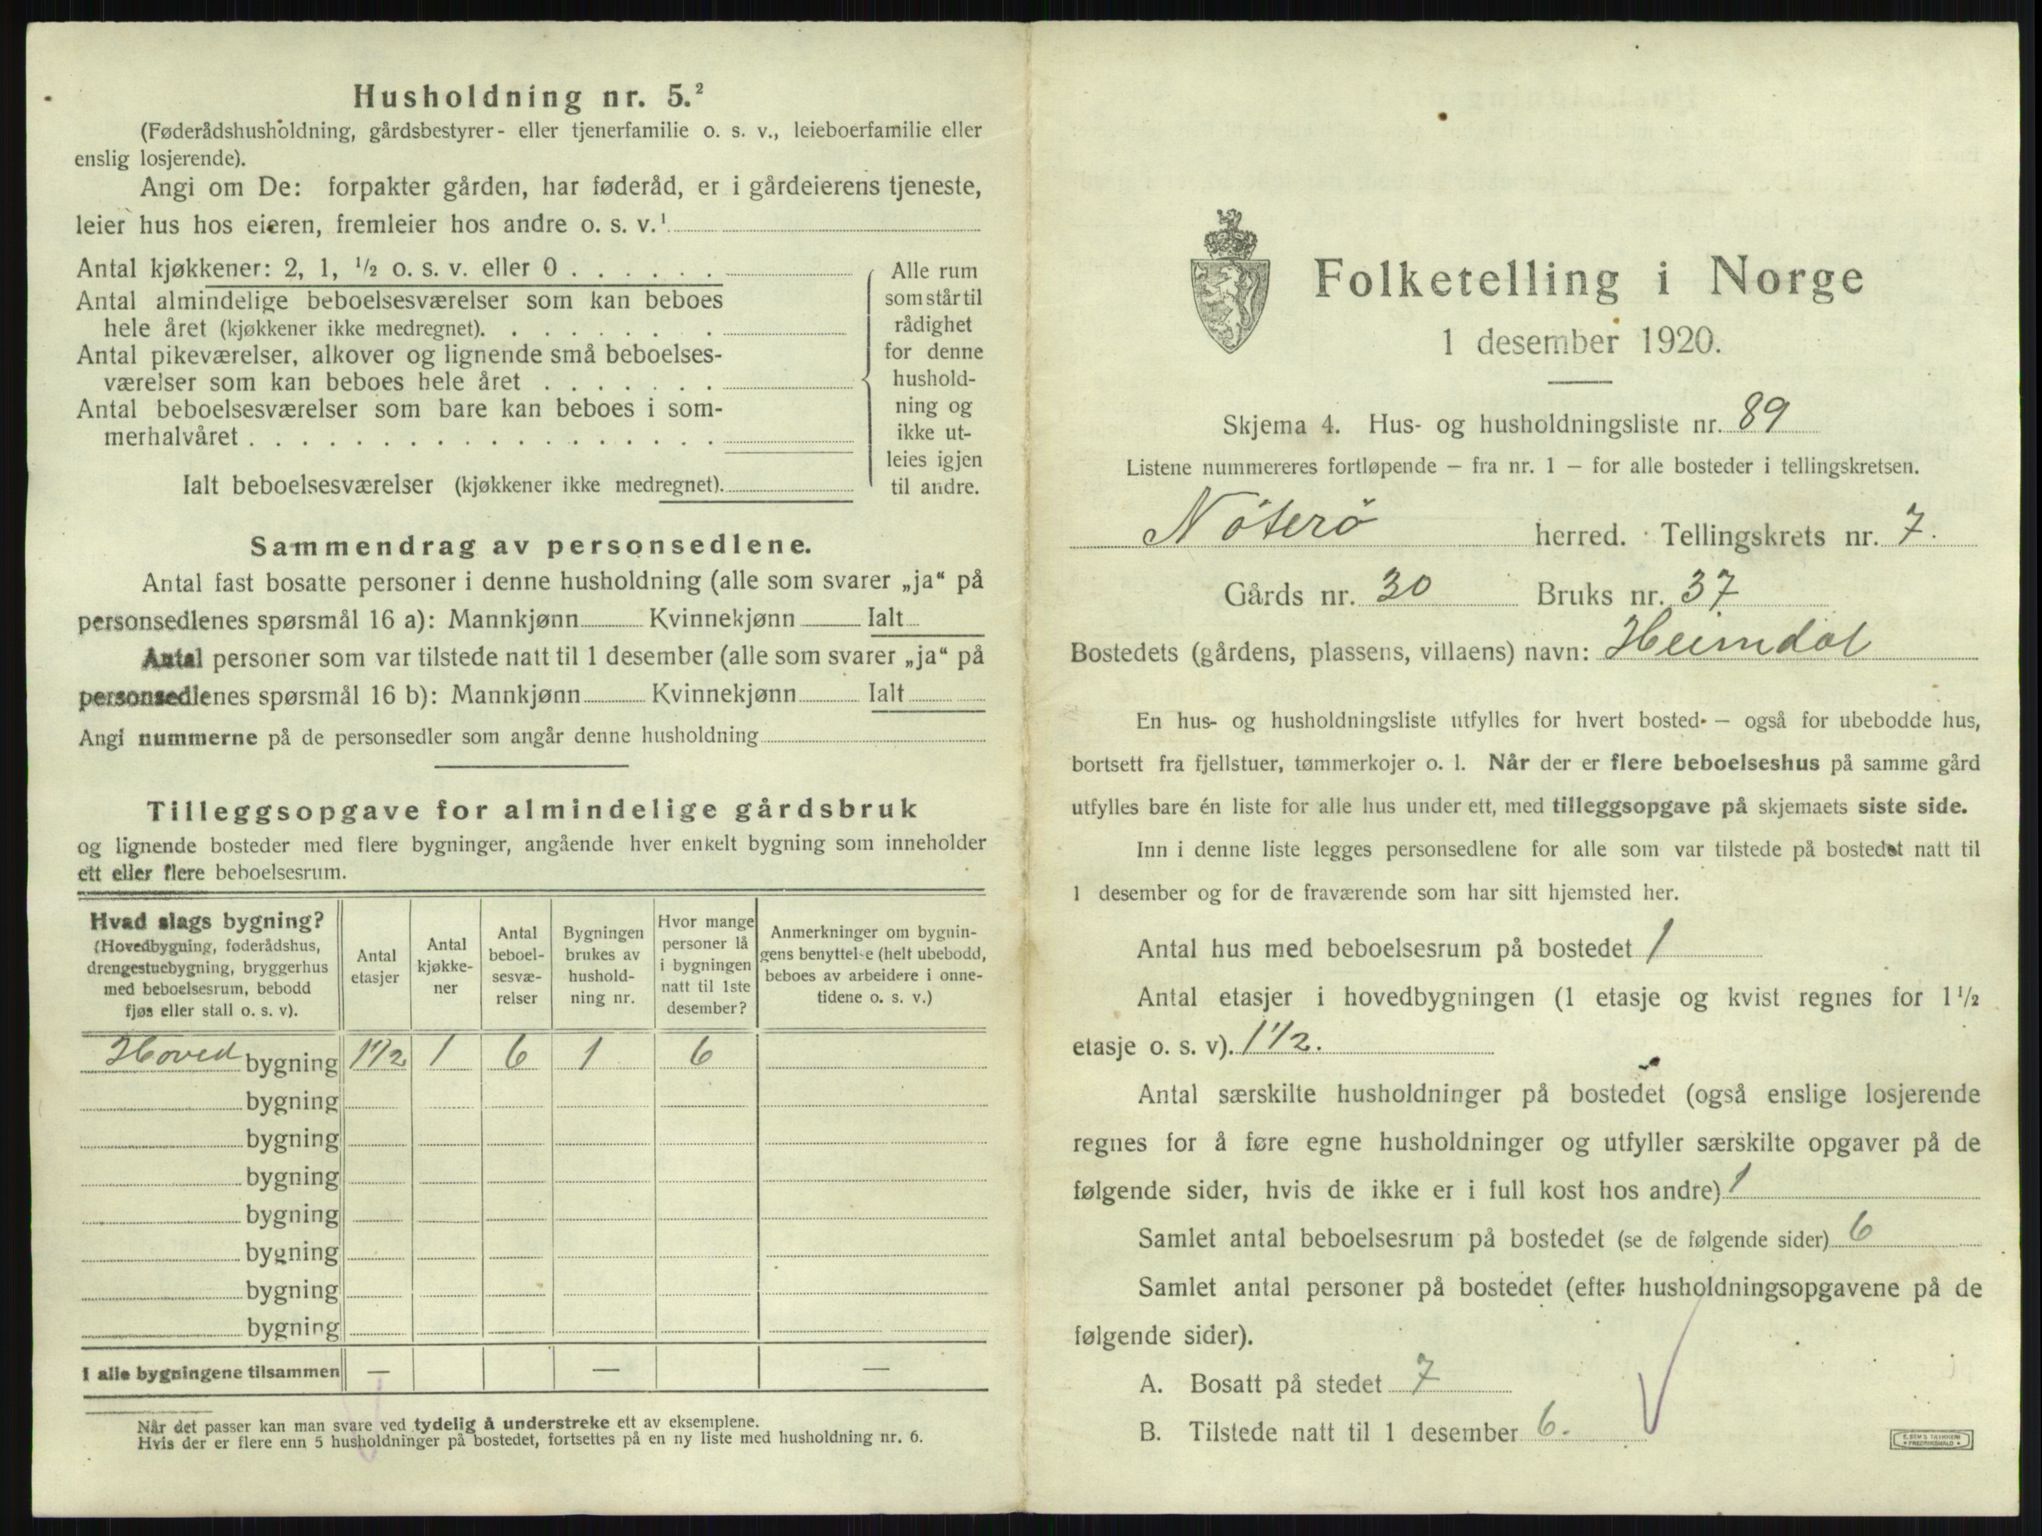 Husholdning nr. 5.²
(Føderådshusholdning, gårdsbestyrer- eller tjenerfamilie o. s. v., leieboerfamilie eller
enslig losjerende).
Angi om De: forpakter gården, har føderåd, er i gårdeierens tjeneste,
leier hus hos eieren, fremleier hos andre o. s. v.¹
Antal kjøkkener: 2, 1, ½ o. s. v. eller 0 . . . . . .
Antal almindelige beboelsesværelser som kan beboes
hele året (kjøkkener ikke medregnet). . . . . . . .
Antal pikeværelser, alkover og lignende små beboelses-
værelser som kan beboes hele året . . . . . . .
Antal beboelsesværelser som bare kan beboes i som-
merhalvåret . . . . . . . . . . . . . . . . . .
Ialt beboelsesværelser (kjøkkener ikke medregnet).
Alle rum
som står til
rådighet
for denne
hushold-
ning og
ikke ut-
leies igjen
til andre.
Sammendrag av personsedlene.
Antal fast bosatte personer i denne husholdning (alle som svarer „ja“ på
personsedlenes spørsmål 16 a): Mannkjønn Kvinnekjønn Ialt
Antal personer som var tilstede natt til 1 desember (alle som svarer „ja“ på
personsedlenes spørsmål 16 b): Mannkjønn Kvinnekjønn Ialt
Angi nummerne på de personsedler som angår denne husholdning
Tilleggsopgave for almindelige gårdsbruk
og lignende bosteder med flere bygninger, angående hver enkelt bygning som inneholder
ett eller flere beboelsesrum.
Hvad slags bygning?
(Hovedbygning, føderådshus,
drengestuebygning, bryggerhus
med beboelsesrum, bebodd
fjøs eller stall o. s. v).
Antal
etasjer
Antal
kjøkke-
ner
Antal
beboel-
sesvæ-
relser
Bygningen
brukes av
hushold-
ning nr.
Hvor mange
personer lå
i bygningen
natt til 1ste
desember?
Anmerkninger om bygnin-
gens benyttelse (helt ubebodd,
beboes av arbeidere i onne-
tidene o. s. v.)
Hoved bygning 1 1/2 1 6 1 6
bygning
bygning
bygning
bygning
bygning
bygning
bygning
I alle bygningene tilsammen — — —
Når det passer kan man svare ved tydelig å understreke ett av eksemplene.
Hvis der er flere enn 5 husholdninger på bostedet, fortsettes på en ny liste med husholdning nr. 6.
Folketelling i Norge
1 desember 1920.
Skjema 4. Hus- og husholdningsliste nr. 89
Listene nummereres fortløpende – fra nr. 1 – for alle bosteder i tellingskretsen.
Nöterö herred. Tellingskrets nr. 7.
Gårds nr. 30 Bruks nr. 37
Bostedets (gårdens, plassens, villaens) navn: Heimdal
En hus- og husholdningsliste utfylles for hvert bosted – også for ubebodde hus,
bortsett fra fjellstuer, tømmerkojer o. l. Når der er flere beboelseshus på samme gård
utfylles bare én liste for alle hus under ett, med tilleggsopgave på skjemaets siste side.
Inn i denne liste legges personsedlene for alle som var tilstede på bostedet natt til
1 desember og for de fraværende som har sitt hjemsted her.
Antal hus med beboelsesrum på bostedet 1
Antal etasjer i hovedbygningen (1 etasje og kvist regnes for 1½
etasje o. s. v). 1 1/2.
Antal særskilte husholdninger på bostedet (også enslige losjerende
regnes for å føre egne husholdninger og utfyller særskilte opgaver på de
følgende sider, hvis de ikke er i full kost hos andre) 1
Samlet antal beboelsesrum på bostedet (se de følgende sider) 6
Samlet antal personer på bostedet (efter husholdningsopgavene på de
følgende sider).
A. Bosatt på stedet 7
B. Tilstede natt til 1 desember 6.